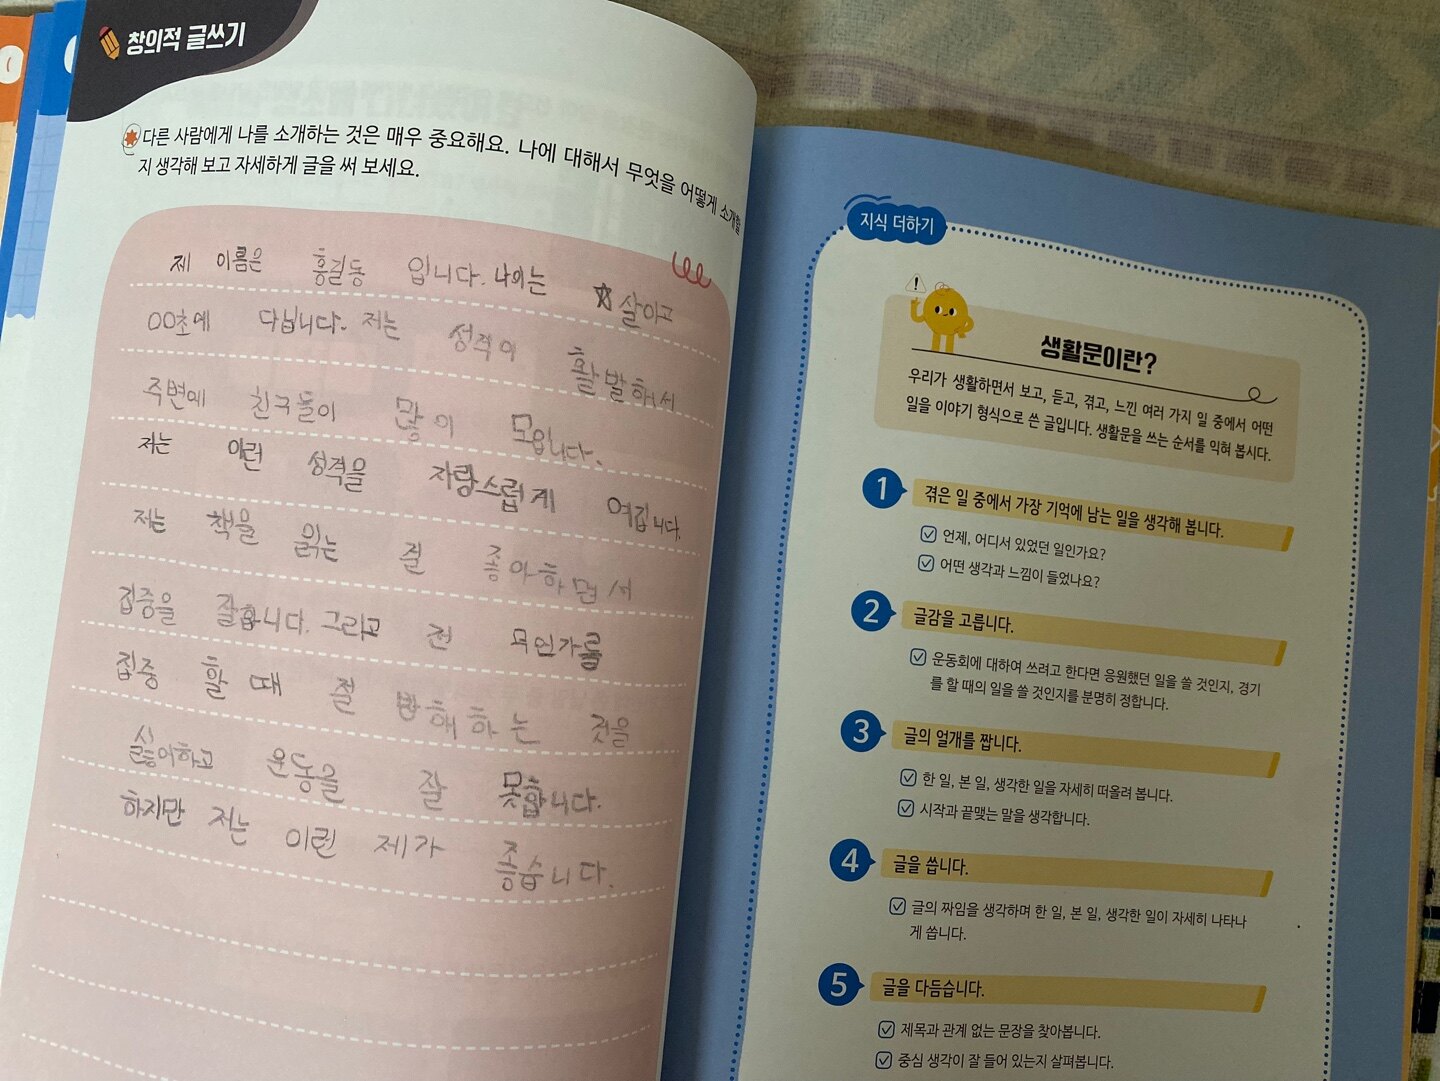 창의적 글쓰기
다른 사람에게 나를 소개하는 것은 매우 중요해요. 나에 대해서 무엇을 어떻게 소개할
지 생각해 보고 자세하게 글을 써 보세요.
제 이름은 홍길동 입니다. 나이는 ☆살이고
OO초에 다닙니다. 저는 성격이 활발하서
주변에 친구들이 많이 모입니다.
저는 이런 성격을 자랑스럽게 여깁니다.
저는 책을 읽는 걸 좋아하면서
집중을 잘합니다. 그리고 전 무언가를
집중 할 때 절 방해하는 것을
싫어하고 운동을 잘 못합니다.
하지만 저는 이런 제가 좋습니다.
지식 더하기
생활문이란?
우리가 생활하면서 보고, 듣고, 겪고, 느낀 여러 가지 일 중에서 어떤
일을 이야기 형식으로 쓴 글입니다. 생활문을 쓰는 순서를 익혀 봅시다.
1 겪은 일 중에서 가장 기억에 남는 일을 생각해 봅니다.
언제, 어디서 있었던 일인가요?
어떤 생각과 느낌이 들었나요?
2 글감을 고릅니다.
운동회에 대하여 쓰려고 한다면 응원했던 일을 쓸 것인지, 경기
를 할 때의 일을 쓸 것인지를 분명히 정합니다.
3 글의 얼개를 짭니다.
한 일, 본 일, 생각한 일을 자세히 떠올려 봅니다.
시작과 끝맺는 말을 생각합니다.
4 글을 씁니다.
글의 짜임을 생각하며 한 일, 본 일, 생각한 일이 자세히 나타나
게 씁니다.
5 글을 다듬습니다.
제목과 관계 없는 문장을 찾아봅니다.
중심 생각이 잘 들어 있는지 살펴봅니다.